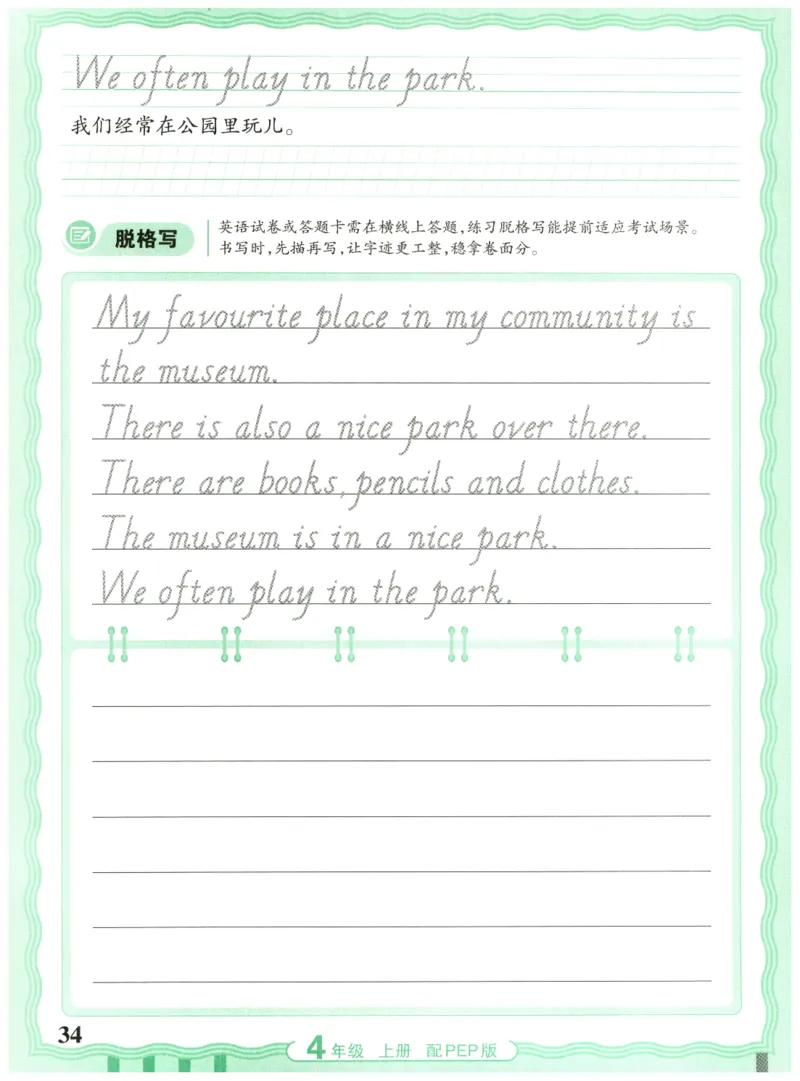 We often play in the park.
我们经常在公园里玩儿。
脱格写
英语试卷或答题卡需在横线上答题,练习脱格写能提前适应考试场景。
书写时,先描再写,让字迹更工整,稳拿卷面分。
My favourite place in my community is
the museum.
There is also a nice park over there.
There are books, pencils and clothes.
The museum is in a nice park.
We often play in the park.
34
4年级 上册 配PEP版